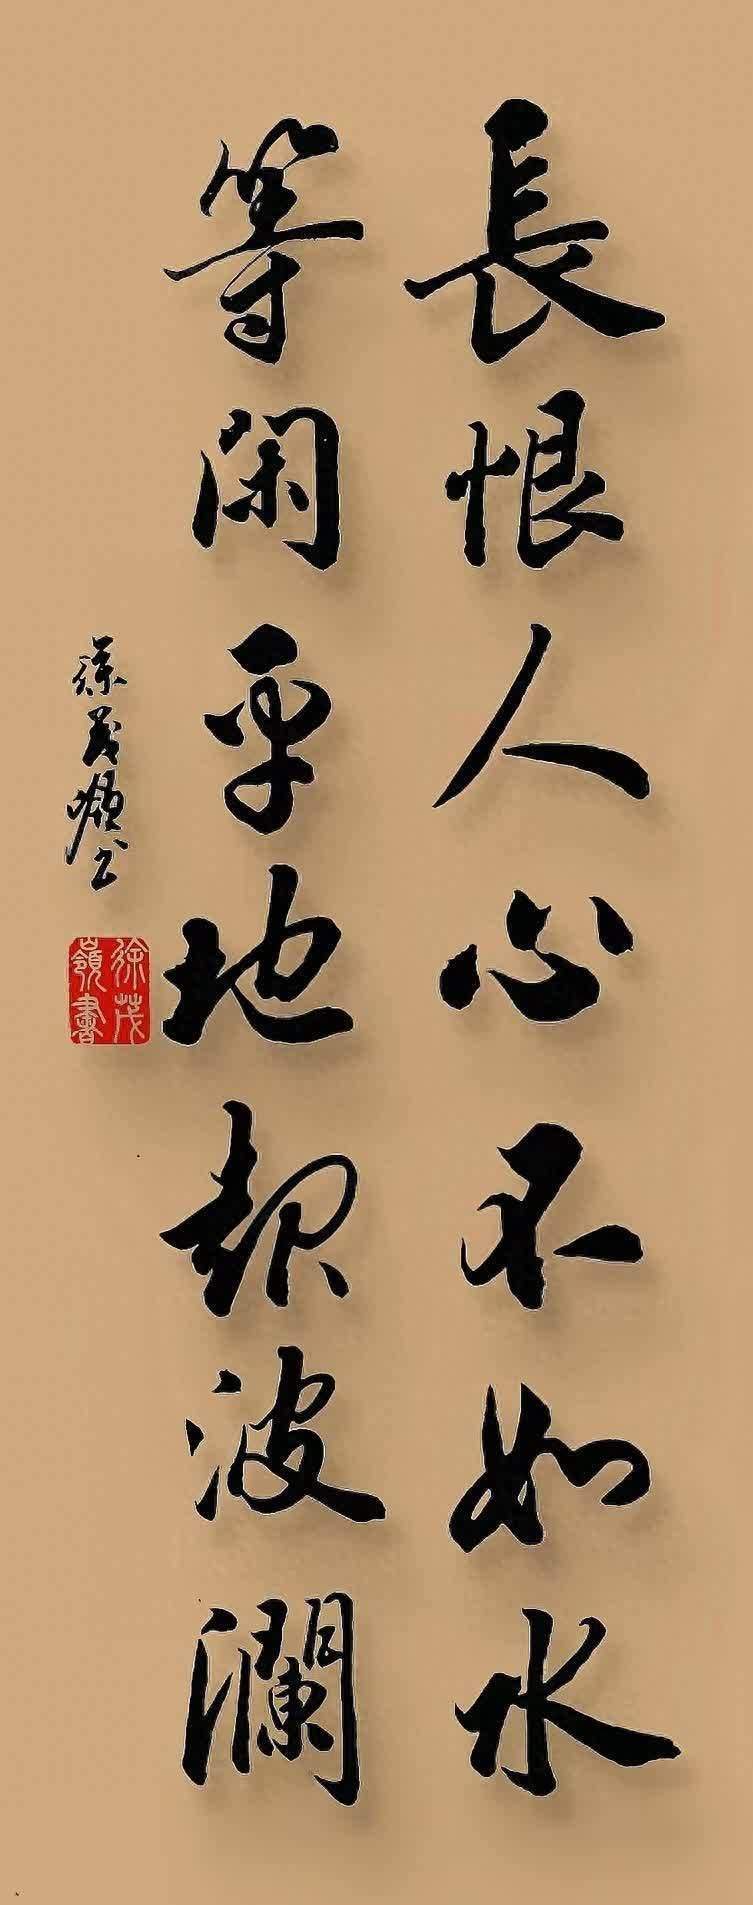 長恨人心不如水
等閑平地起波瀾
徐茂嶺书
徐茂
嶺書